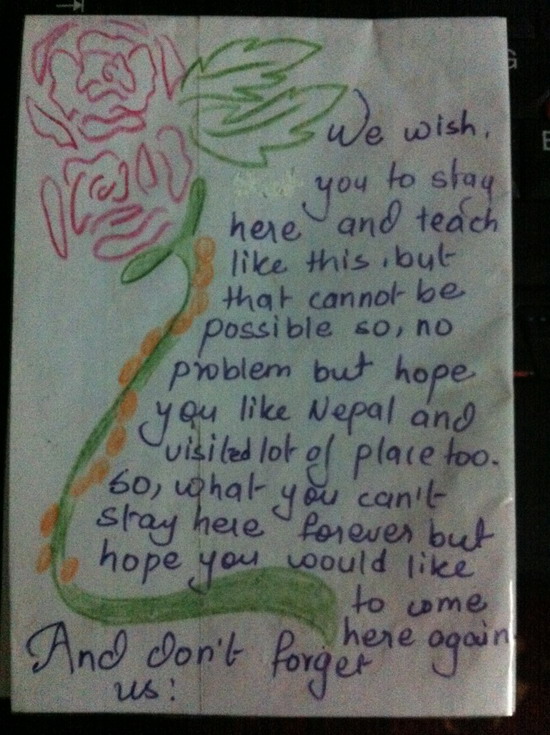 We wish.
you to stay
here and teach
like this, but
that cannot be
possible so, no
problem but hope
you like Nepal and
visited lot of place too.
So, what you can't
stay here forever but
hope you would like
to come
here again
And don't forget
us: